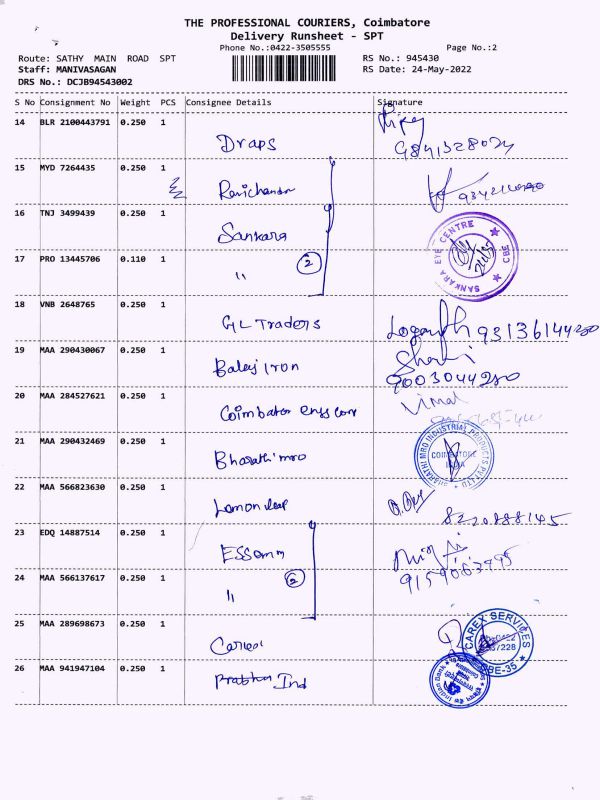 THE PROFESSIONAL COURIERS, Coimbatore
Delivery Runsheet - SPT
Phone No.:0422-3505555 Page No.:2
Route: SATHY MAIN ROAD SPT RS No.: 945430
Staff: MANIVASAGAN RS Date: 24-May-2022
DRS No.: DCJB94543002
S No Consignment No Weight PCS Consignee Details Signature
14 BLR 2100443791 0.250 1
Draps 9841328024
15 MYD 7264435 0.250 1
Ravichandran
16 TNJ 3499439 0.250 1
Sankara SANKARA EYE CENTRE CBE
17 PRO 13445706 0.110 1
" 2
18 VNB 2648765 0.250 1
GL Traders
19 MAA 290430067 0.250 1
Balaji Iron 9003044280
20 MAA 284527621 0.250 1
Coimbator Vimal
21 MAA 290432469 0.250 1
Bharathi mro BHARATHI MRO INDUSTRIAL PRODUCTS PVT LTD COIMBATORE INDIA
22 MAA 566823630 0.250 1
Lemon leaf 8220888145
23 EDQ 14887514 0.250 1
ESSomm 9159063995
24 MAA 566137617 0.250 1
" 2
25 MAA 289698673 0.250 1
Carex CAREX SERVICES CBE-35
26 MAA 941947104 0.250 1
Prabhu Ind Indian Bank